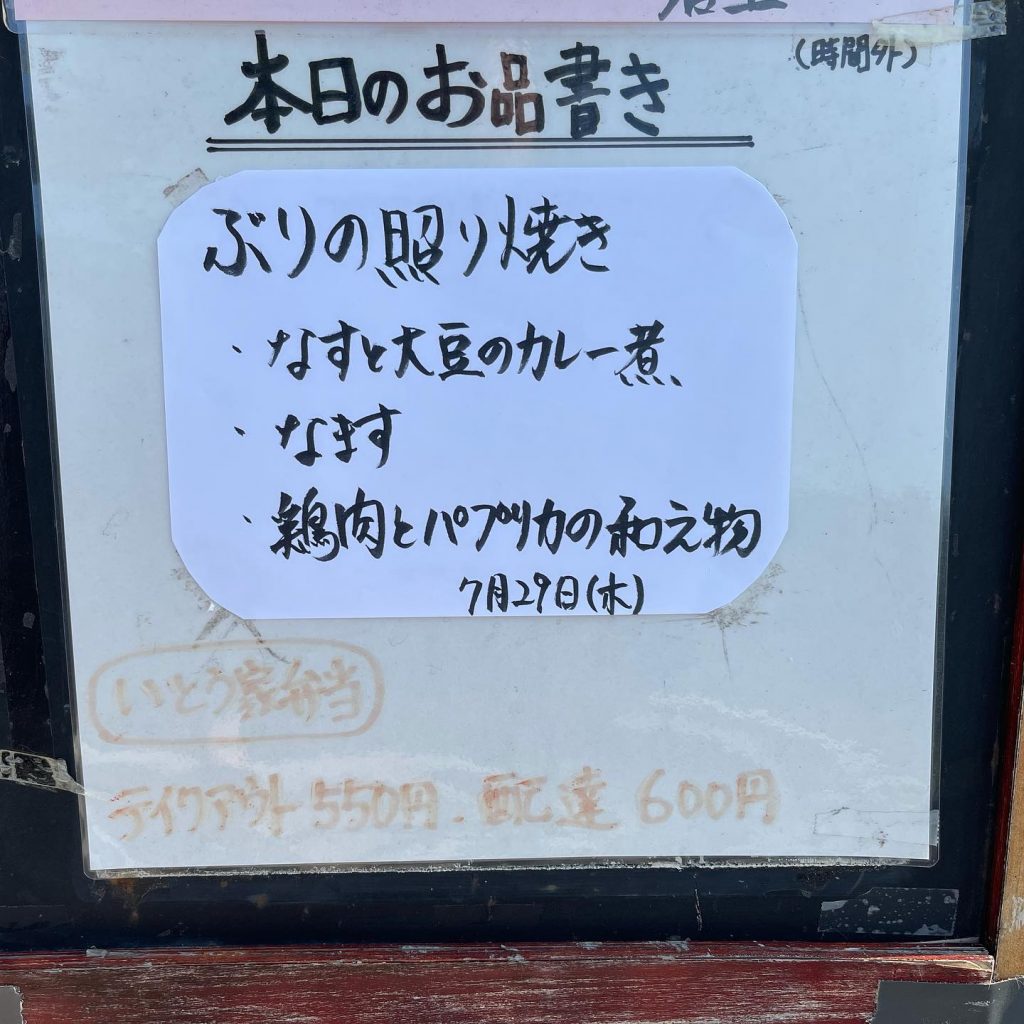 (時間外)
本日のお品書き
ぶりの照り焼き
・なすと大豆のカレー煮
・なます
・鶏肉とパプリカの和え物
7月29日(水)
いとう家弁当
テイクアウト 550円. 配達 600円